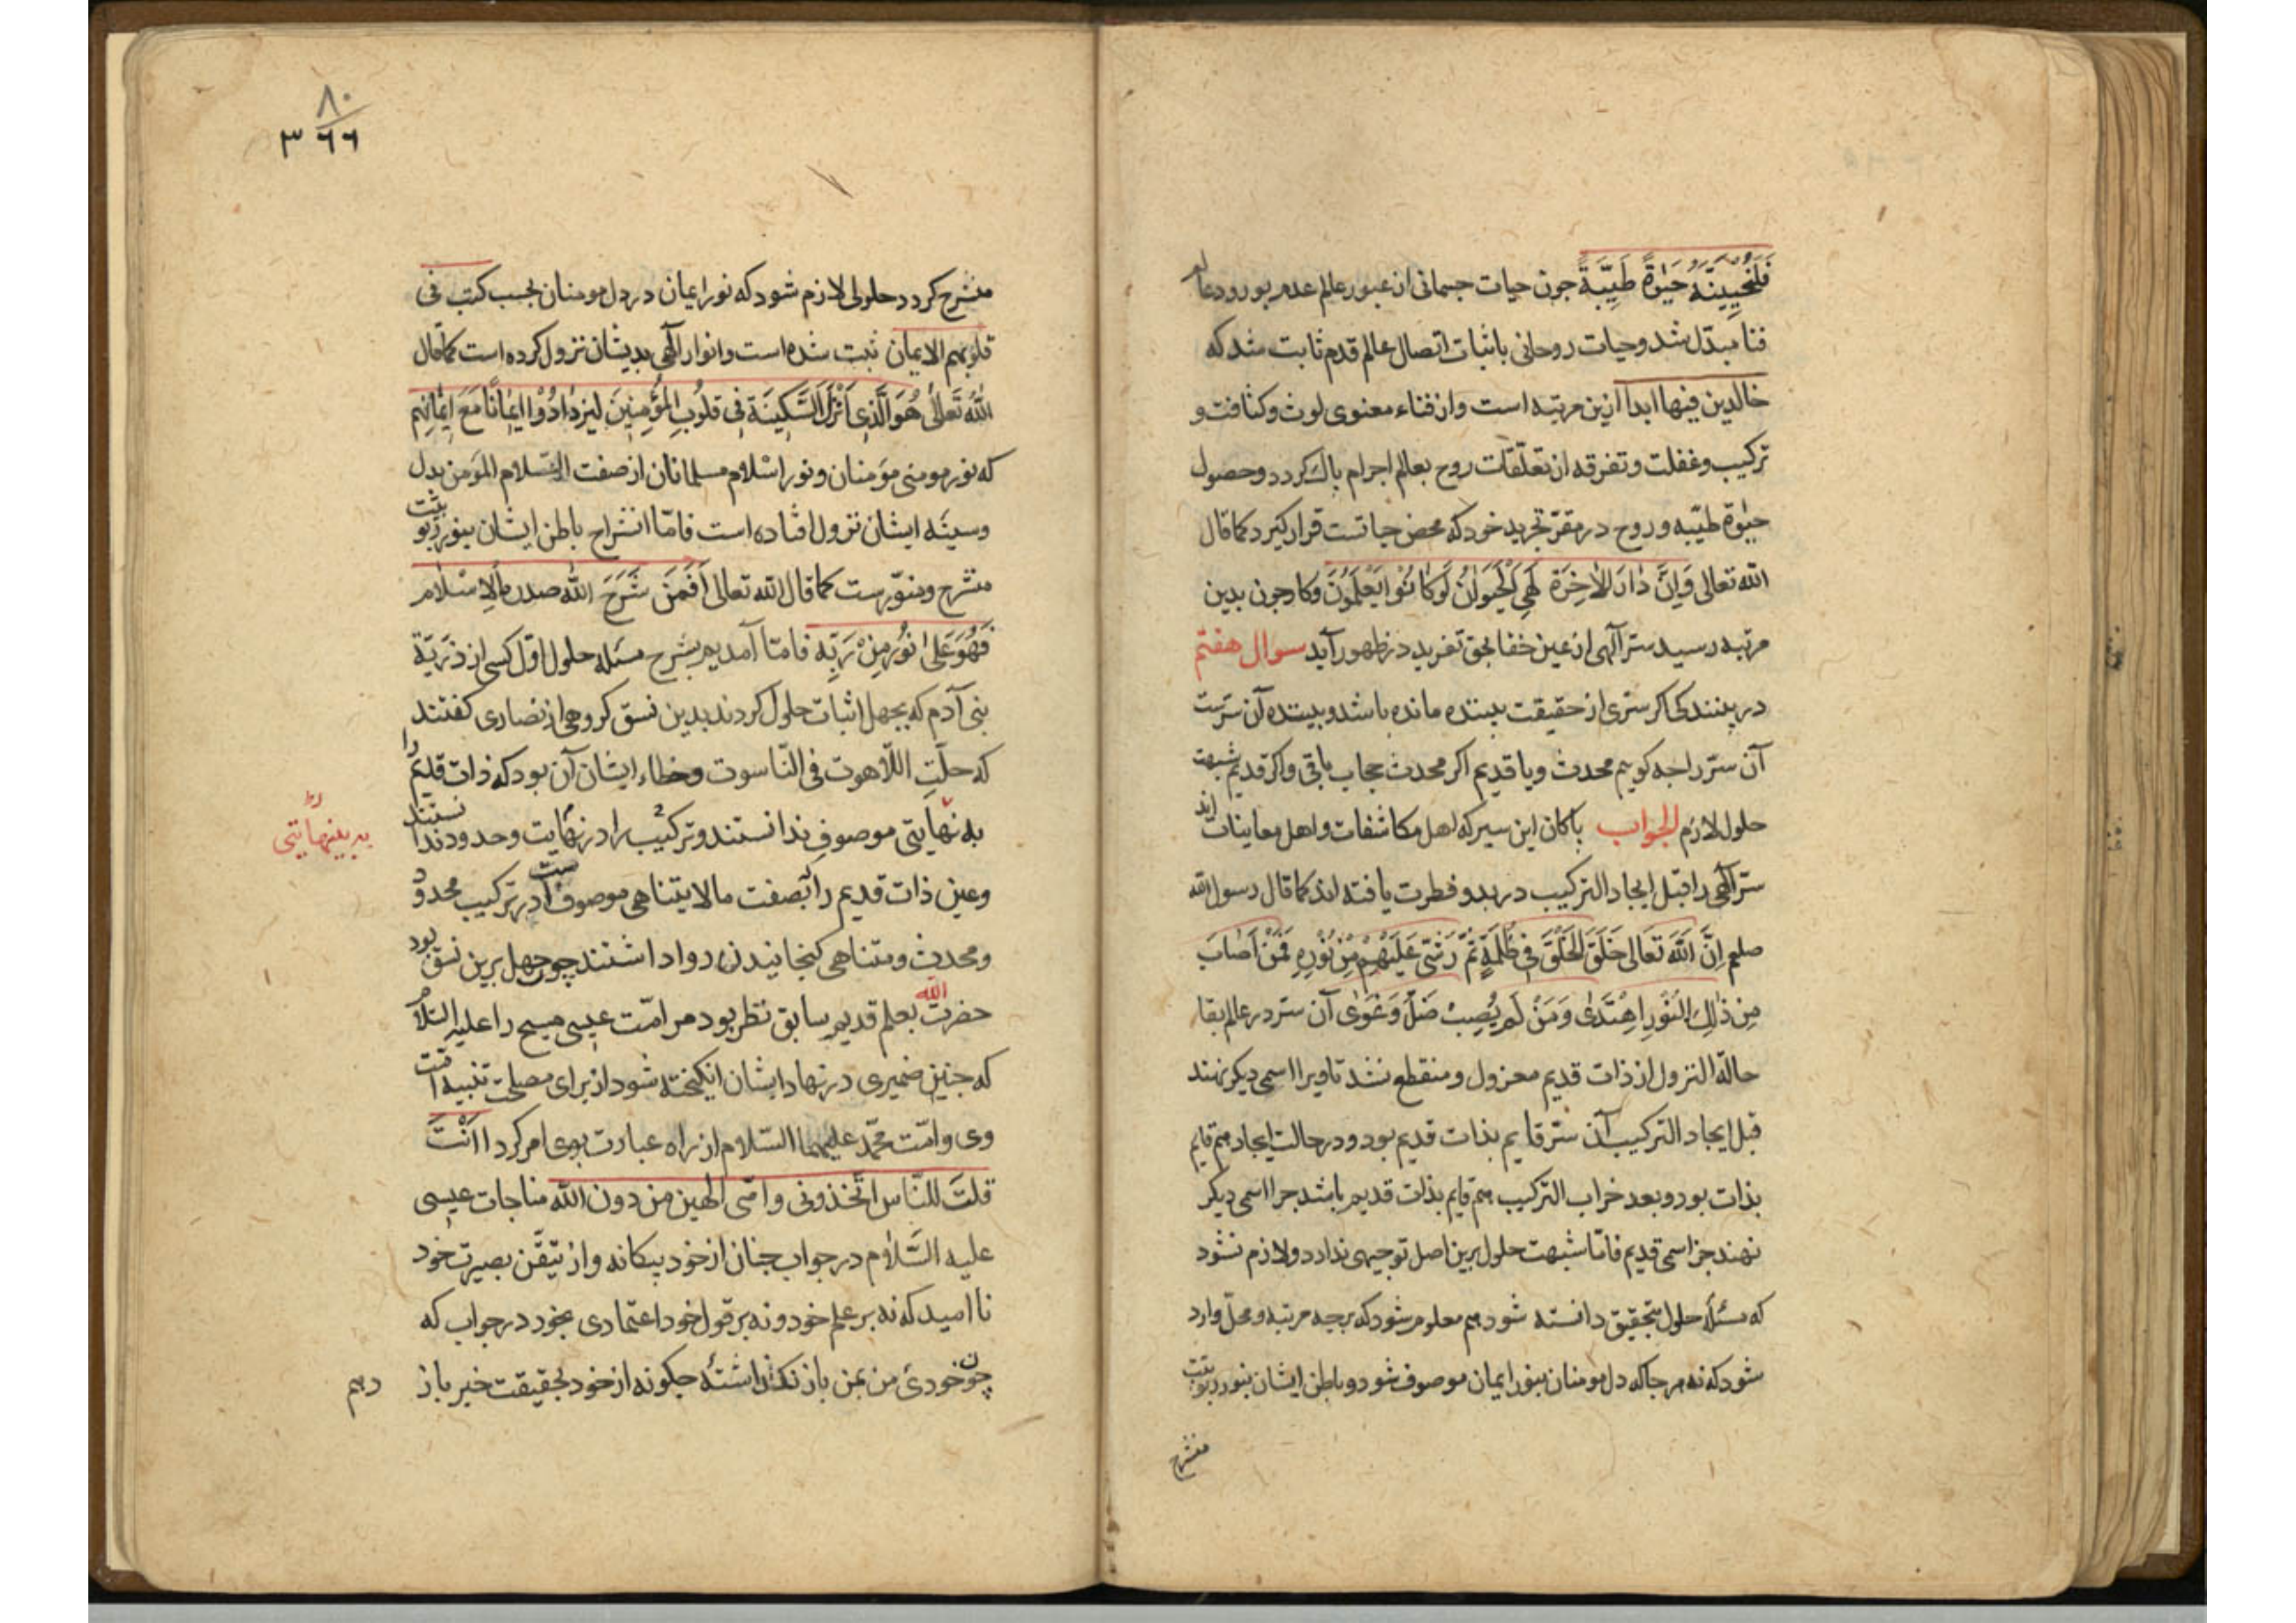 فَلَنُحْیِیَنَّهُ حَیٰوةً طَیِّبَةً جون حیات جسمانی از عبور عالم عدم بود و دعا
فنا مبدّل شد و حیات روحانی باثبات اتصال عالم قدم ثابت شد که
خالدین فیها ابداً ازین مرتبه است و از فناء معنوی لوث و کثافت و
ترکیب و غفلت و تفرقه از تعلّقات روح بعالم اجرام باک کردد و حصول
حیٰوة طیّبه و روح در مقرّ تجرید خود که محض حیاتست قرار کیرد کما قال
الله تعالی وَاِنَّ دٰارَ الْاٰخِرَةَ لَهِیَ الْحَیَوٰانُ لَوْ کٰانُوْا یَعْلَمُوْنَ و کار جون بدین
مرتبه رسید سرّ آلهی از عین خفا بحق تفرید در ظهور آید سوال هفتم
در بینند کی اکر سرّی از حقیقت بیننده مانده باشد و بیننده آن سرّست
آن سرّ را جه کوییم محدث و یا قدیم اکر محدث حجاب باقی و اکر قدیم شبهت
حلول لازم الجواب باکان این سیر که اهل مکاشفات و اهل معاینات اند
سرّ آلهی را قبل ایجاد الترکیب در بدو فطرت یافته اند کما قال رسول الله
صلعم اِنَّ اللّٰهَ تَعَالی خَلَقَ الْخَلْقَ فِی ظُلْمَةٍ ثُمَّ رَشَّ عَلَیْهِمْ مِنْ نُوْرِهِ فَمَنْ اَصَابَ
مِن ذٰلِکَ النُّوْرِ اهْتَدیٰ وَمَنْ لَمْ یُصِبْ ضَلَّ وَغَوٰی آن سرّ در عالم بقا
حالة النزول از ذات قدیم معزول و منقطع نشد تا ویرا اسمی دیکر نهند
قبل ایجاد الترکیب آن سرّ قایم بذات قدیم بود و در حالت ایجاد هم قایم
بذات بود و بعد خراب الترکیب هم قایم بذات قدیم باشد جرا اسمی دیکر
نهند جز اسمی قدیم فامّا شبهت حلول برین اصل توجیهی ندارد و لازم نشود
که مسئلهٔ حلول بتحقیق دانسته شود هم معلوم شود که بجه مرتبه و محلّ وارد
شود که نه هر جا که دل مومنان بنور ایمان موصوف شود و باطن ایشان بنور ربوبیّت
منشرح
۸۰
۳۶۶
منشرح کردد حلولی لازم شود که نور ایمان در دل مومنان بحسب کتب فی
قلوبهم الایمان ثبت شده است و انوار آلهی بدیشان نزول کرده است کما قال
اللّٰهُ تَعَالیٰ هُوَ الَّذِی اَنْزَلَ السَّکِینَةَ فِی قُلُوبِ الْمُؤْمِنِینَ لِیَزْدٰادُوْا اِیْمٰانًا مَعَ اِیْمٰانِهِمْ
که نور مومنی مؤمنان و نور اسْلام مسلمانان از صفت السّلام المؤمن بدل
وسینهٔ ایشان نزول افتاده است فامّا انشراح باطن ایشان بنور ربوبیّت
منشرح و منوّرست کما قال الله تعالی اَفَمَنْ شَرَحَ اللّٰه صدره لِلاِسْلام
فَهُوَ عَلیٰ نُوْرٍ مِنْ رَبِّهِ فامّا آمدیم بشرح مسئله حلول اوّل کسی از ذرّیّة
بنی آدم که بجهل اثبات حلول کردند بدین نسق کروهی از نصاری کفتند
که حلّتِ اللّاهوت فی النّاسوت و خطاء ایشان آن بود که ذات قدیم را
به نهایتی موصوف ندانستند و ترکیب را در نهایت و حدود ندانستند
به بینهایتی
وعین ذات قدیم را بصفت ما لایتناهی موصوفست آ در ترکیب محدود
و محدث و متناهی کنجانیدن روا داشتند چو جهل برین نسق بود
حضرت الله بعلم قدیم سابق نظر بود مر امّت عیسی مسیح را علیه السّلام
که جنین ضمیری در نهاد ایشان انکیخته شود از برای مصلحت تنبیه امّت
وی و امّت محمّد علیهما السّلام از راه عبارت بوی امر کرد اانْتَ
قلتَ للنّاس اتّخذونی و امّی الهین من دون الله مناجات عیسی
علیه السَّلام در جواب جنان از خود بیکانه و از تیقّن بصیرت خود
ناامید که نه بر علم خود و نه بر قول خود اعتمادی بخود در جواب که
چون خودیٔ من بمن باز نکذاشتهٔ جکونه از خود بحقیقت خبر باز دهم